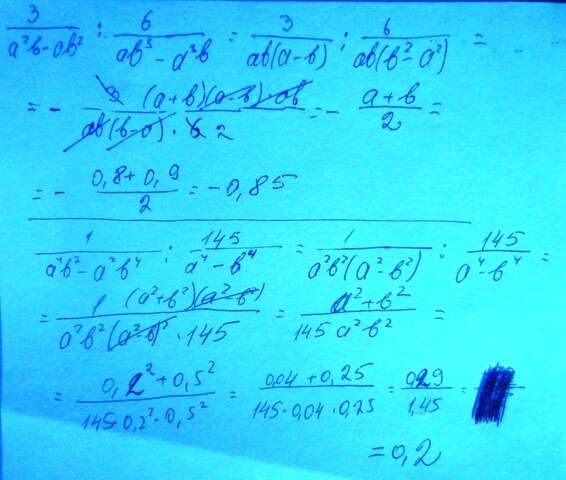 3/(a²b-ab²) : 6/(ab³-a³b) = 3/(ab(a-b)) : 6/(ab(b²-a²)) =
= - 3 (a+b)(a-b)·ab/(ab(b-a)·6 2) = - (a+b)/2 =
= - (0,8+0,9)/2 = -0,85
1/(a⁴b²-a²b⁴) : 145/(a⁴-b⁴) = 1/(a²b²(a²-b²)) : 145/(a⁴-b⁴) =
= 1 (a²+b²)(a²-b²)/(a²b²(a²-b²)·145) = (a²+b²)/(145 a²b²) =
= (0,2²+0,5²)/(145·0,2²·0,5²) = (0,04+0,25)/(145·0,04·0,25) = 0,29/1,45 =
= 0,2